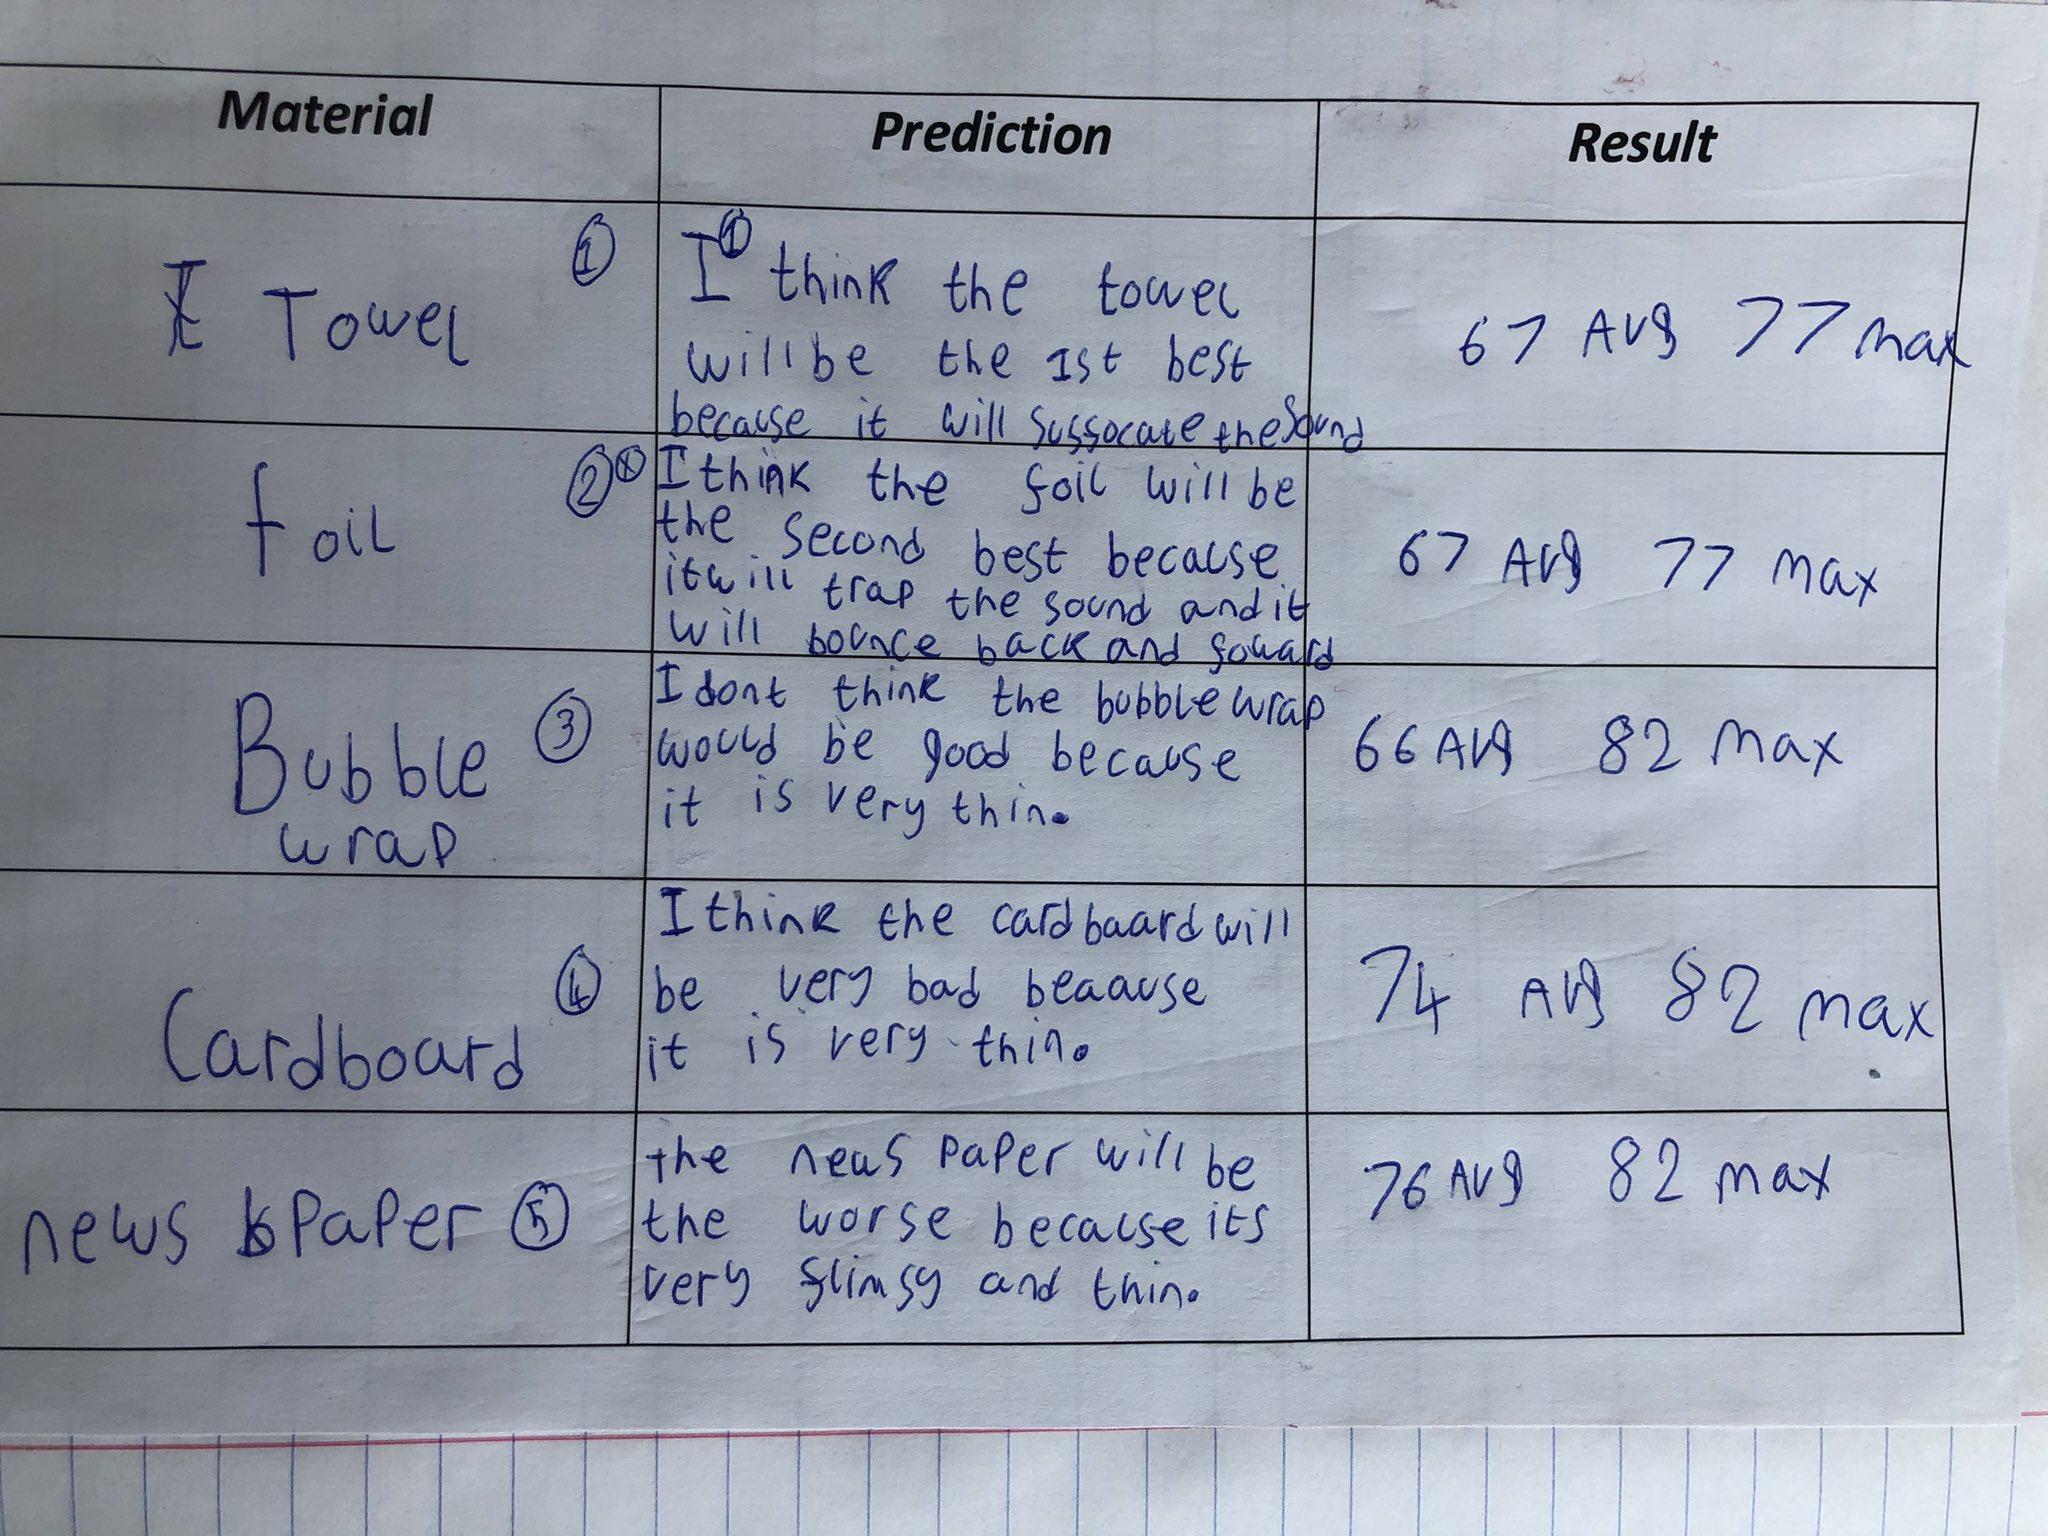 Material
Prediction
Result
Towel ①
I ① think the towel
will be the 1st best
because it will sussocate the sound
67 AVg 77 max
foil ②
I think the foil will be
the second best because
it will trap the sound and it
will bounce back and foward
67 AVg 77 max
Bubble ③
wrap
I dont think the bubble wrap
would be good because
it is very thin.
66 AVg 82 max
Cardboard ④
I think the cardbaard will
be very bad beaause
it is very thin.
74 AVg 82 max
news paper ⑤
the news paper will be
the worse because its
very flimsy and thin.
76 AVg 82 max